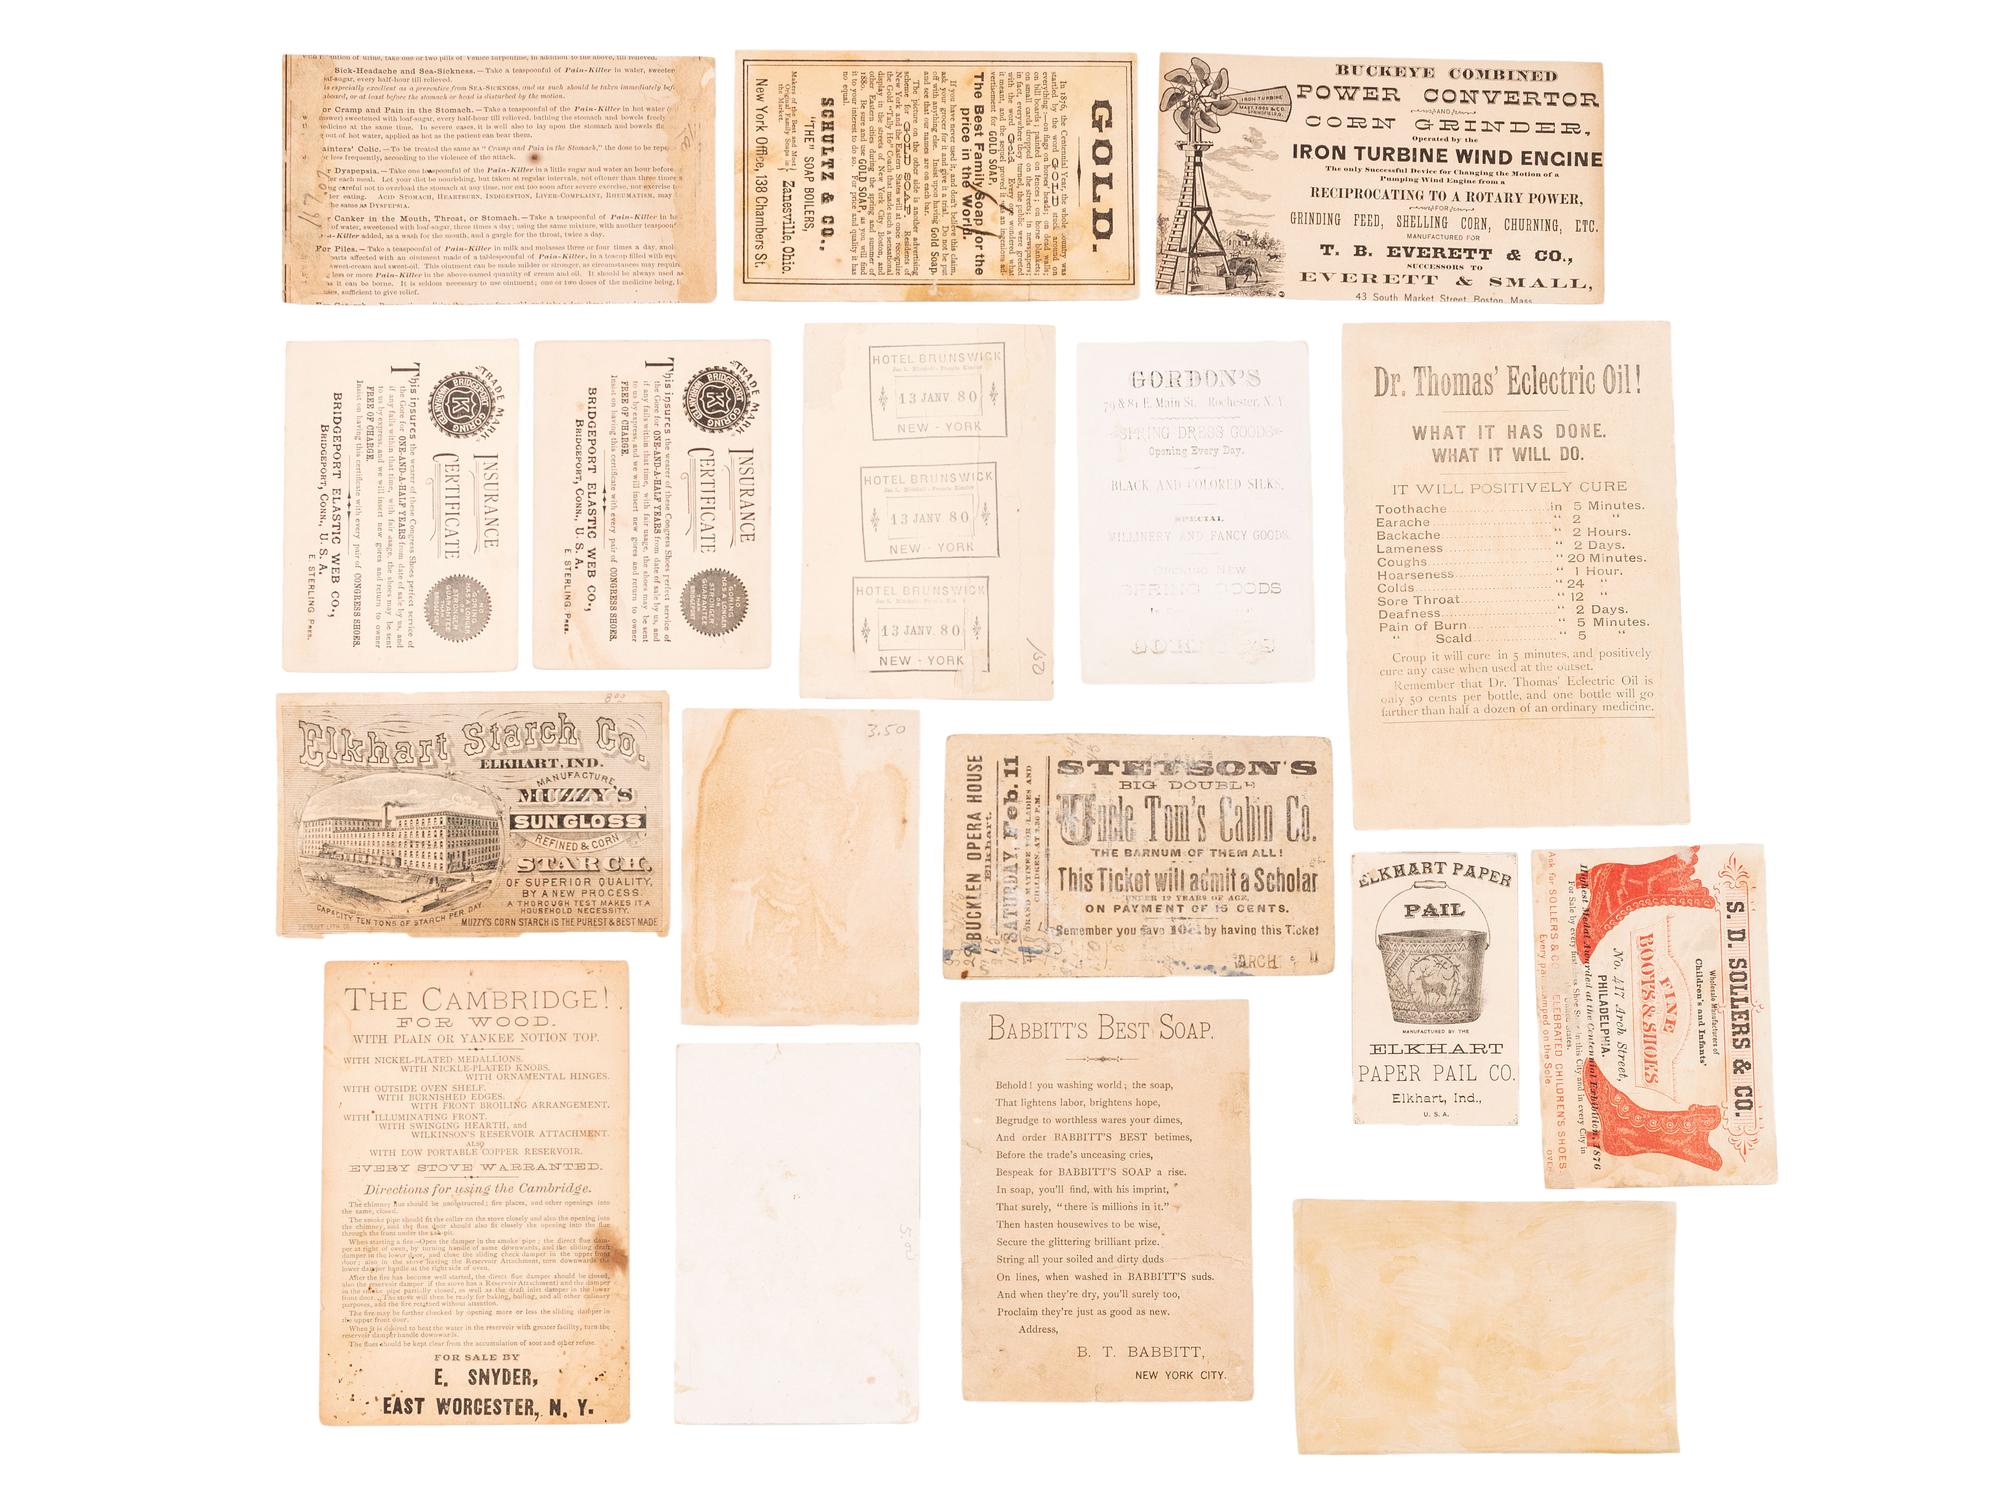 Sick-Headache and Sea-Sickness. — Take a teaspoonful of Pain-Killer in water, sweeten
loaf-sugar, every half-hour till relieved.
is especially excellent as a preventive from SEA-SICKNESS, and as such should be taken immediately bef
aboard, or at least before the stomach or head is disturbed by the motion.
or Cramp and Pain in the Stomach. — Take a teaspoonful of the Pain-Killer in hot water
sweetened with loaf-sugar, every half-hour till relieved, bathing the stomach and bowels freely
medicine at the same time. In severe cases, it is well also to lay upon the stomach and bowels
out of hot water, applied as hot as the patient can bear them.
ainters' Colic. — To be treated the same as "Cramp and Pain in the Stomach," the dose to be repe
or less frequently, according to the violence of the attack.
r Dyspepsia. — Take one teaspoonful of the Pain-Killer in a little sugar and water an hour before
each meal. Let your diet be nourishing, but taken at regular intervals, not oftener than three times
ng careful not to overload the stomach at any time, nor eat too soon after severe exercise, nor exercise
ter eating. ACID STOMACH, HEARTBURN, INDIGESTION, LIVER-COMPLAINT, RHEUMATISM, may
the same as DYSPEPSIA.
r Canker in the Mouth, Throat, or Stomach. — Take a teaspoonful of Pain-Killer in
of water, sweetened with loaf-sugar, three times a day; using the same mixture, with another teaspoon
-Killer added, as a wash for the mouth, and a gargle for the throat, twice a day.
For Piles. — Take a teaspoonful of Pain-Killer in milk and molasses three or four times a day,
parts affected with an ointment made of a tablespoonful of Pain-Killer, in a teacup filled with
sweet-cream and sweet-oil. This ointment can be made milder or stronger, as circumstances may require
less or more Pain-Killer in the above-named quantity of cream and oil. It should be always used as
as it can be borne. It is seldom necessary to use ointment; one or two doses of the medicine being,
ses, sufficient to give relief.
GOLD.
In 1876, the Centennial Year, the whole country was
startled by the word GOLD stuck around on
everything:—on flags on horses' heads; on dead walls;
on bill boards; painted on fences; on horse blankets;
on small cards dropped on the streets; in newspapers;
in fact, everywhere they turned, the public were greeted
with the word Gold. Every one wondered what
it meant, and the sequel proved it was an ingenious ad-
vertisement for GOLD SOAP,
The Best Family Soap for the
price in the World.
If you have never used it, and don't believe this claim,
ask your grocer for it and give it a trial. Do not be put
off with anything else. Insist upon having Gold Soap,
and see that our names are on each bar.
The picture on the other side is another advertising
scheme for GOLD SOAP. Residents of
New York and the Eastern States will at once recognize
the Gold "Tally Ho" Coach that made such a sensational
display in the streets of New York City, Boston, and
other Eastern cities during the spring and summer of
1880. Be sure and use GOLD SOAP, as you will find
it to your interest to do so. For price and quality it has
no equal.
SCHULTZ & CO.,
"THE" SOAP BOILERS,
Makers of the Best and Most
Original Family Soaps in
the Market.
Zanesville, Ohio.
New York Office, 138 Chambers St.
IRON TURBINE
MAST, FOOS & CO.
SPRINGFIELD, O.
BUCKEYE COMBINED
POWER CONVERTOR
AND
CORN GRINDER,
Operated by the
IRON TURBINE WIND ENGINE
The only Successful Device for Changing the Motion of a
Pumping Wind Engine from a
RECIPROCATING TO A ROTARY POWER,
FOR
GRINDING FEED, SHELLING CORN, CHURNING, ETC.
MANUFACTURED FOR
T. B. EVERETT & CO.,
SUCCESSORS TO
EVERETT & SMALL,
43 South Market Street, Boston, Mass.
TRADE MARK
BRIDGEPORT
GORING
INSURANCE
CERTIFICATE
NO
GORING
HAS A LONGER
OR A
STRONGER
GUARANTEE
THAN
BRIDGEPORT
This insures the wearer of these Congress Shoes perfect service of
the Gore for ONE-AND-A-HALF YEARS from date of sale by us, and
if any fails within that time, with fair usage, the shoes may be sent
to us by express, and we will insert new gores and return to owner
FREE OF CHARGE.
Insist on having this certificate with every pair of CONGRESS SHOES.
BRIDGEPORT ELASTIC WEB CO.,
BRIDGEPORT, CONN., U. S. A.
E. STERLING, PRES.
TRADE MARK
BRIDGEPORT
GORING
INSURANCE
CERTIFICATE
NO
GORING
HAS A LONGER
OR A
STRONGER
GUARANTEE
THAN
BRIDGEPORT
This insures the wearer of these Congress Shoes perfect service of
the Gore for ONE-AND-A-HALF YEARS from date of sale by us, and
if any fails within that time, with fair usage, the shoes may be sent
to us by express, and we will insert new gores and return to owner
FREE OF CHARGE.
Insist on having this certificate with every pair of CONGRESS SHOES.
BRIDGEPORT ELASTIC WEB CO.,
BRIDGEPORT, CONN., U. S. A.
E. STERLING, PRES.
HOTEL BRUNSWICK
13 JANV. 80
NEW-YORK
HOTEL BRUNSWICK
13 JANV 80
NEW-YORK
HOTEL BRUNSWICK
13 JANV. 80
NEW-YORK
150
GORDON'S
79 & 81 E. Main St. Rochester, N. Y.
SPRING DRESS GOODS
Opening Every Day.
BLACK AND COLORED SILKS.
SPECIAL
MILLINERY AND FANCY GOODS.
OPENING NEW
SPRING GOODS
GORDON'S
Dr. Thomas' Eclectric Oil!
WHAT IT HAS DONE.
WHAT IT WILL DO.
IT WILL POSITIVELY CURE
Toothache in 5 Minutes.
Earache " 2 "
Backache " 2 Hours.
Lameness " 2 Days.
Coughs " 20 Minutes.
Hoarseness " 1 Hour.
Colds " 24 "
Sore Throat " 12 "
Deafness " 2 Days.
Pain of Burn " 5 Minutes.
" Scald " 5 "
Croup it will cure in 5 minutes, and positively
cure any case when used at the outset.
Remember that Dr. Thomas' Eclectric Oil is
only 50 cents per bottle, and one bottle will go
farther than half a dozen of an ordinary medicine.
800
Elkhart Starch Co.
ELKHART, IND.
MANUFACTURE
MUZZY'S
SUN GLOSS
REFINED & CORN
STARCH.
OF SUPERIOR QUALITY,
BY A NEW PROCESS.
A THOROUGH TEST MAKES IT A
HOUSEHOLD NECESSITY.
CAPACITY TEN TONS OF STARCH PER DAY.
MUZZY'S CORN STARCH IS THE PUREST & BEST MADE
3.50
BUCKLEN OPERA HOUSE
Elkhart.
SATURDAY, Feb. 11
STETSON'S
BIG DOUBLE
Uncle Tom's Cabin Co.
THE BARNUM OF THEM ALL!
This Ticket will admit a Scholar
UNDER 12 YEARS OF AGE,
ON PAYMENT OF 15 CENTS.
Remember you save 10c. by having this Ticket
ARCH
ELKHART PAPER
PAIL
MANUFACTURED BY THE
ELKHART
PAPER PAIL CO.
Elkhart, Ind.,
U. S. A.
S. D. SOLLERS & CO.
Wholesale Manufacturers of
Children's and Infants'
FINE
BOOTS & SHOES
No. 417 Arch Street,
PHILADELPHIA.
Highest Medal Awarded at the Centennial Exhibition, 1876
For Sale by every first class Shoe Store in this City and in every City in
the United States.
Ask for SOLLERS & CO. CELEBRATED CHILDREN'S SHOES
Every pair stamped on the Sole.
OVER
THE CAMBRIDGE!
FOR WOOD.
WITH PLAIN OR YANKEE NOTION TOP.
WITH NICKEL-PLATED MEDALLIONS.
WITH NICKLE-PLATED KNOBS.
WITH ORNAMENTAL HINGES.
WITH OUTSIDE OVEN SHELF.
WITH BURNISHED EDGES.
WITH FRONT BROILING ARRANGEMENT.
WITH ILLUMINATING FRONT.
WITH SWINGING HEARTH, and
WILKINSON'S RESERVOIR ATTACHMENT.
ALSO
WITH LOW PORTABLE COPPER RESERVOIR.
EVERY STOVE WARRANTED.
Directions for using the Cambridge.
The chimney flue should be unobstructed; fire places, and other openings into
the same, closed.
The smoke pipe should fit the collar on the stove closely and also the opening into
the chimney, and the flue door should also fit closely the opening into the flue
through the front under the ash-pit.
When starting a fire—Open the damper in the smoke pipe; the direct flue dam-
per at right of oven, by turning handle of same downwards, and the sliding draft
damper in the lower door, and close the sliding check damper in the upper front
door; also in the stove having the Reservoir Attachment, turn downwards the
lower damper handle at the right side of oven.
After the fire has become well started, the direct flue damper should be closed,
also the reservoir damper if the stove has a Reservoir Attachment) and the damper
in the smoke pipe partially closed, as well as the draft inlet damper in the lower
front door. The stove will then be ready for baking, boiling, and all other culinary
purposes, and the fire retained without attention.
The fire may be further checked by opening more or less the sliding damper in
the upper front door.
When it is desired to heat the water in the reservoir with greater facility, turn the
reservoir damper handle downwards.
The flues should be kept clear from the accumulation of soot and other refuse.
FOR SALE BY
E. SNYDER,
EAST WORCESTER, N. Y.
5.00
BABBITT'S BEST SOAP.
Behold! you washing world; the soap,
That lightens labor, brightens hope,
Begrudge to worthless wares your dimes,
And order BABBITT'S BEST betimes,
Before the trade's unceasing cries,
Bespeak for BABBITT'S SOAP a rise.
In soap, you'll find, with his imprint,
That surely, "there is millions in it."
Then hasten housewives to be wise,
Secure the glittering brilliant prize.
String all your soiled and dirty duds
On lines, when washed in BABBITT'S suds.
And when they're dry, you'll surely too,
Proclaim they're just as good as new.
Address,
B. T. BABBITT,
NEW YORK CITY.